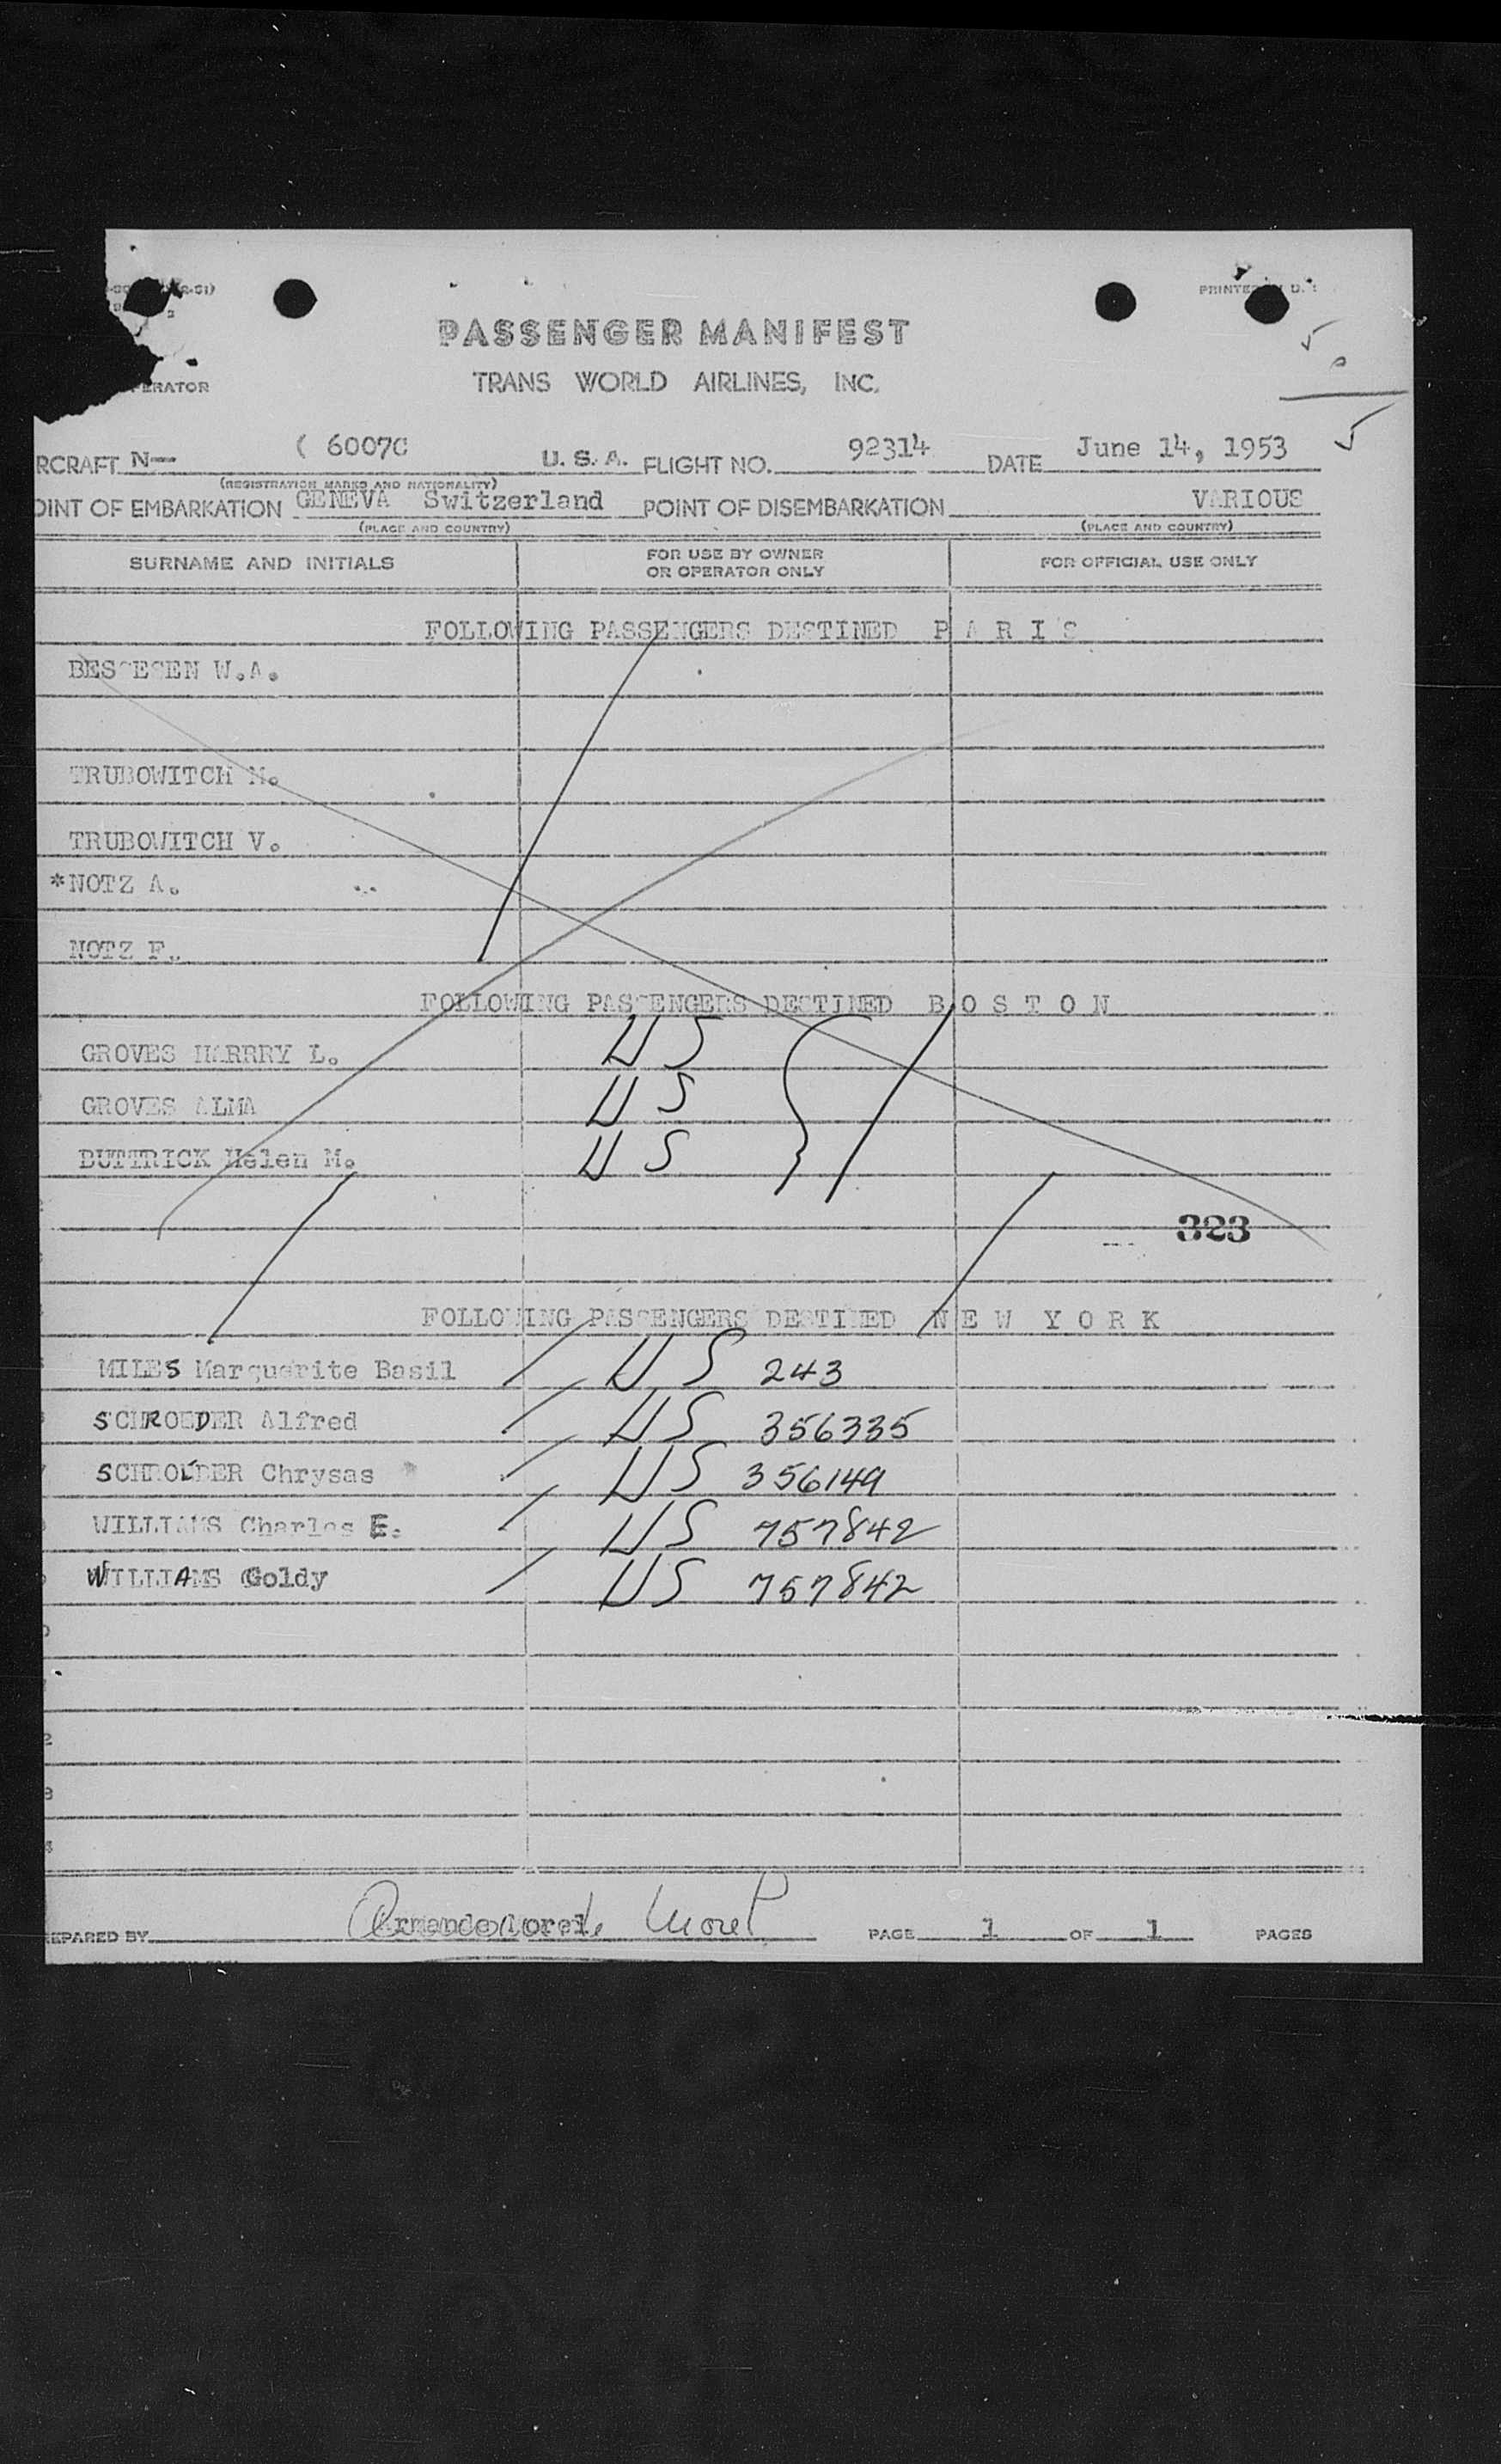 PRINTED
PASSENGER MANIFEST
ERATOR TRANS WORLD AIRLINES, INC.
5
0
5
RCRAFT N— ( 6007C U. S. A. FLIGHT NO. 92314 DATE June 14, 1953
(REGISTRATION MARKS AND NATIONALITY)
OINT OF EMBARKATION GENEVA Switzerland POINT OF DISEMBARKATION VARIOUS
(PLACE AND COUNTRY) (PLACE AND COUNTRY)
SURNAME AND INITIALS FOR USE BY OWNER OR OPERATOR ONLY FOR OFFICIAL USE ONLY
FOLLOWING PASSENGERS DESTINED P A R I S
BESSESEN W.A.
TRUBOWITCH M.
TRUBOWITCH V.
*NOTZ A.
NOTZ F.
FOLLOWING PASSENGERS DESTINED B O S T O N
GROVES HARRRY L. US
GROVES ALMA US
BUTTRICK Helen M. US
323
FOLLOWING PASSENGERS DESTINED N E W Y O R K
MILES Marguerite Basil US 243
SCHROEDER Alfred US 356335
SCHROEDER Chrysas US 356149
WILLIAMS Charles E. US 757842
WILLIAMS Goldy US 757842
EPARED BY Morel PAGE 1 OF 1 PAGES